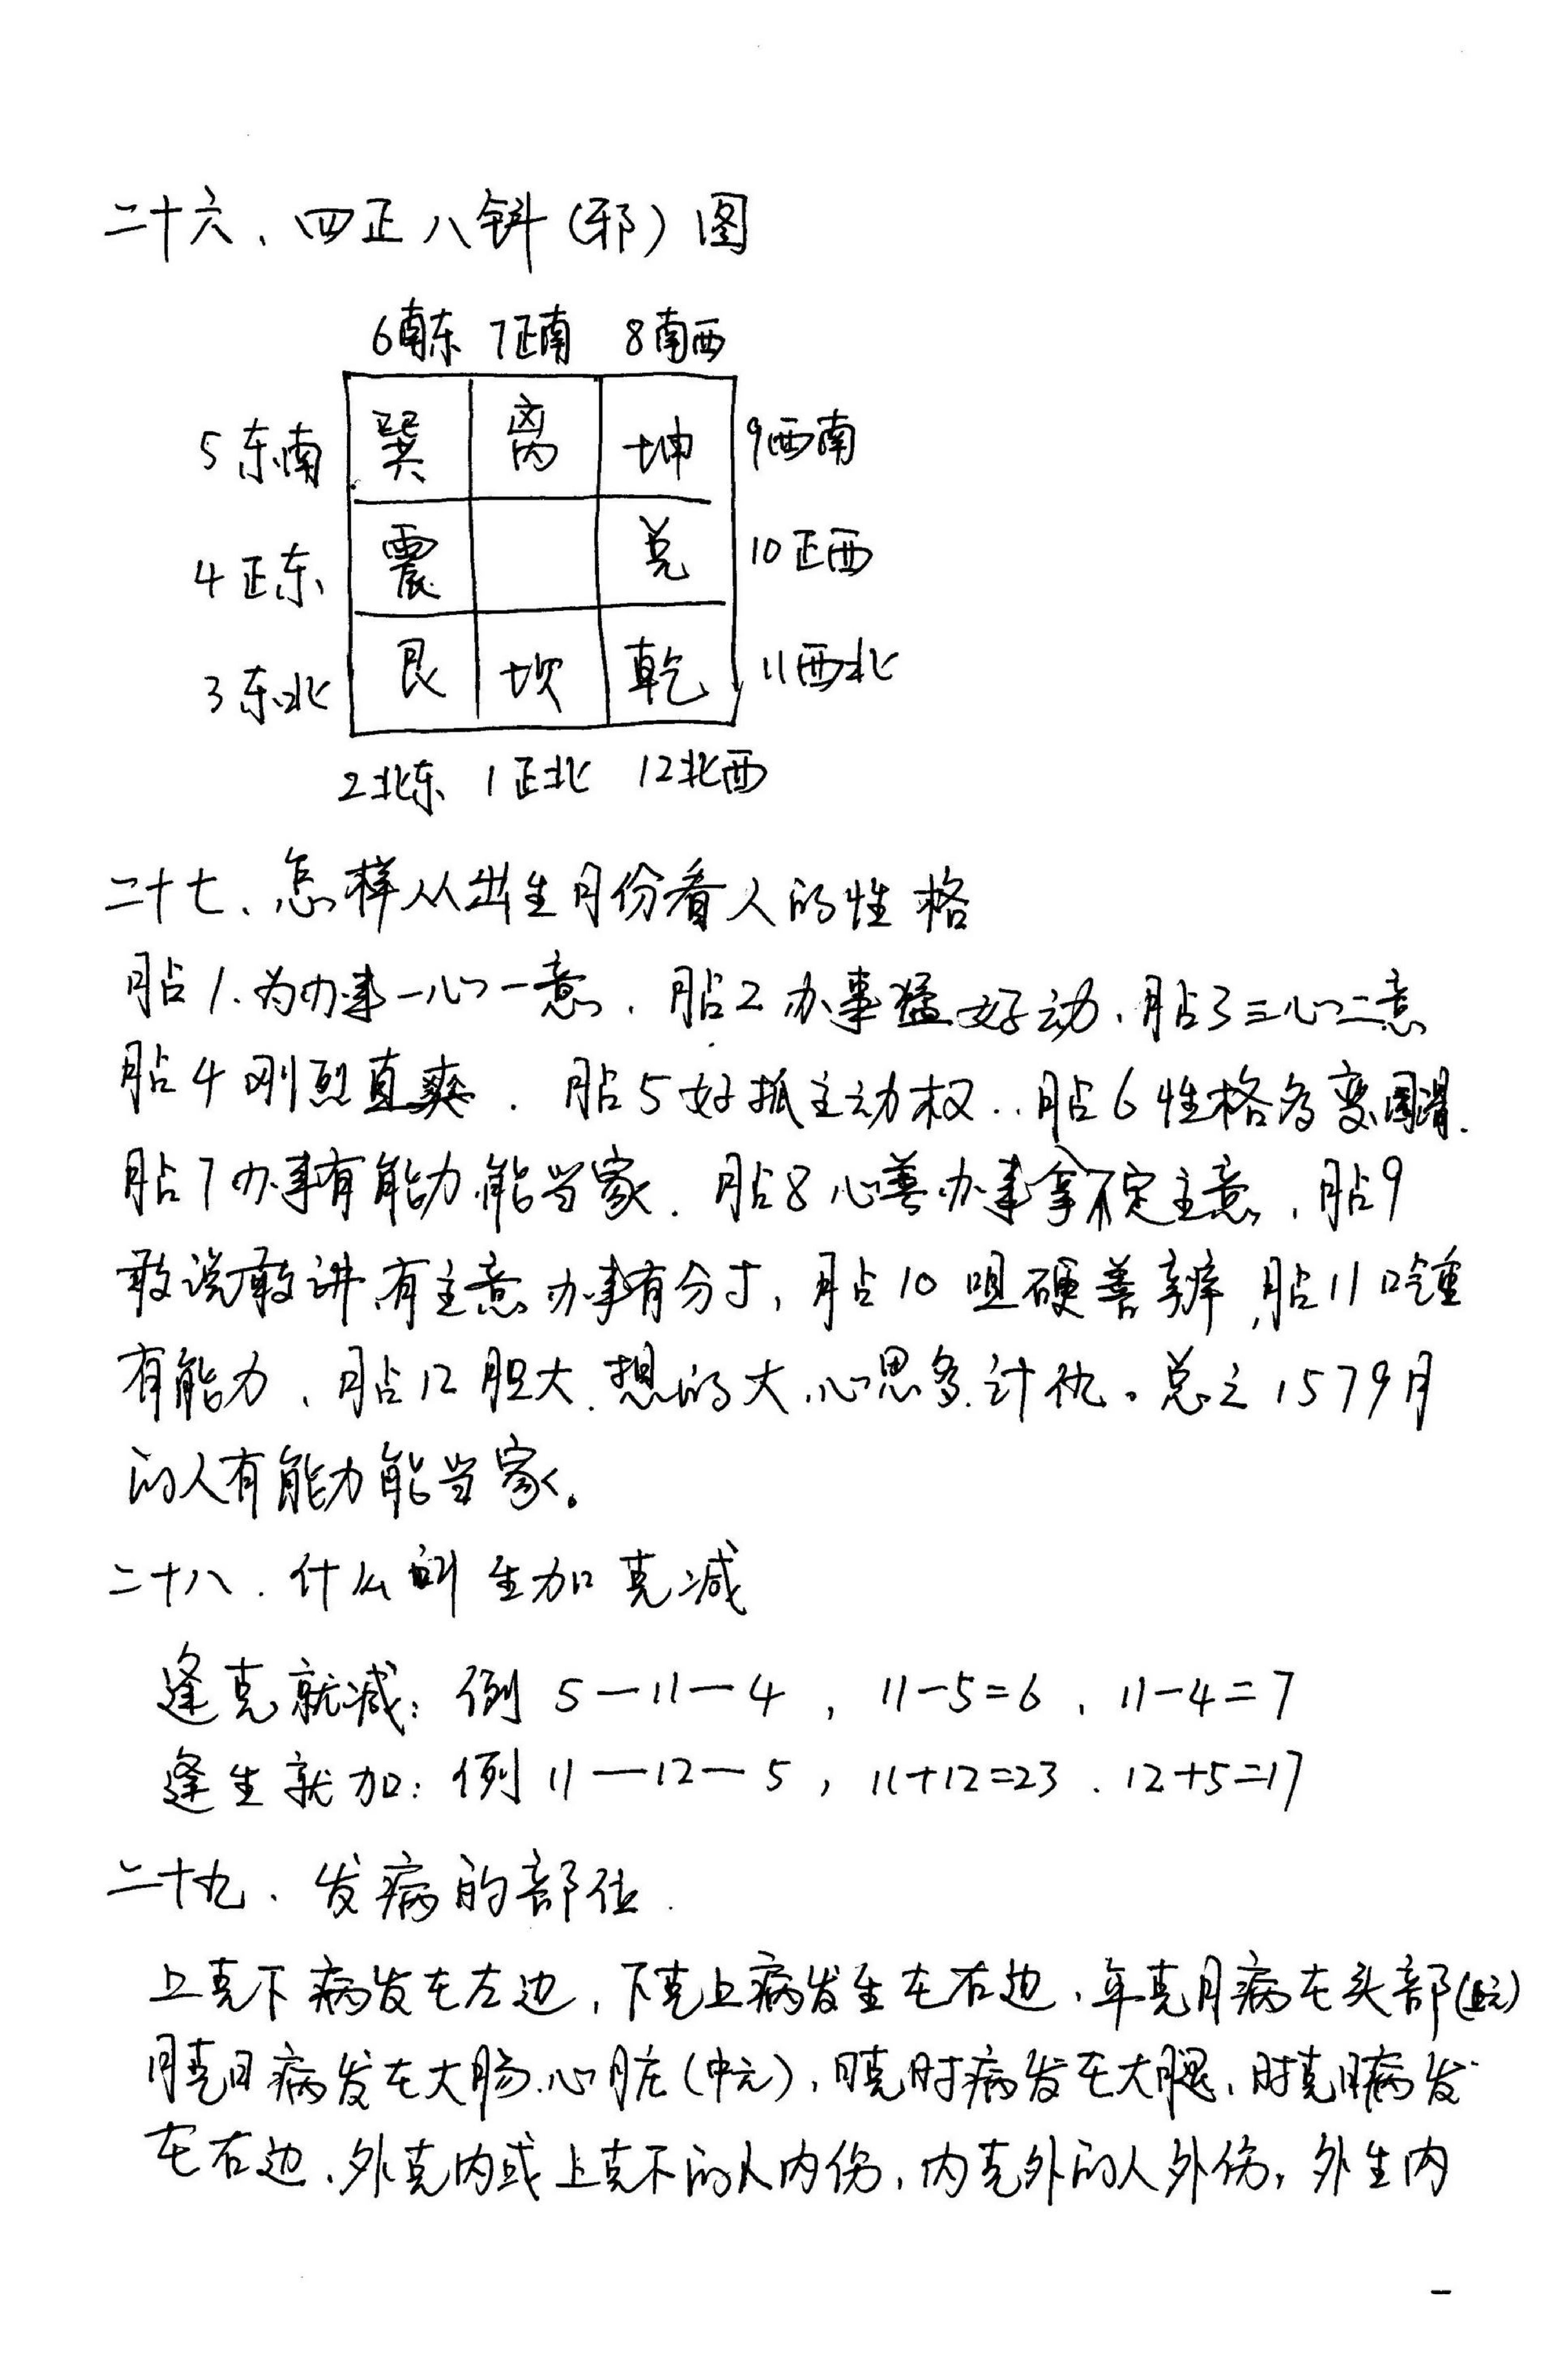 二十六、四正八斜(邪)图
6南东 7正南 8南西
5东南 巽 离 坤 9西南
4正东 震 兑 10正西
3东北 艮 坎 乾 11西北
2北东 1正北 12北西
二十七、怎样从出生月份看人的性格
月占1.为办事一心一意.月占2办事猛好动.月占3三心二意
月占4刚烈直爽.月占5好抓主动权..月占6性格多变圆滑.
月占7办事有能力能当家.月占8心善办事拿不定主意,月占9
敢说敢讲有主意办事有分寸,月占10咀硬善辨,月占11口重
有能力、月占12胆大.想的大.心思多.计仇。总之1579月
的人有能力能当家。
二十八.什么叫生加克减
逢克就减:例 5—11—4,11-5=6.11-4=7
逢生就加:例11—12—5,11+12=23.12+5=17
二十九、发病的部位.
上克下病发在左边,下克上病发生在右边、年克月病在头部(上元)
月克日病发在大肠.心脏(中元),日克时病发在大腿、时克日病发
在右边、外克内或上克下的人内伤,内克外的人外伤,外生内